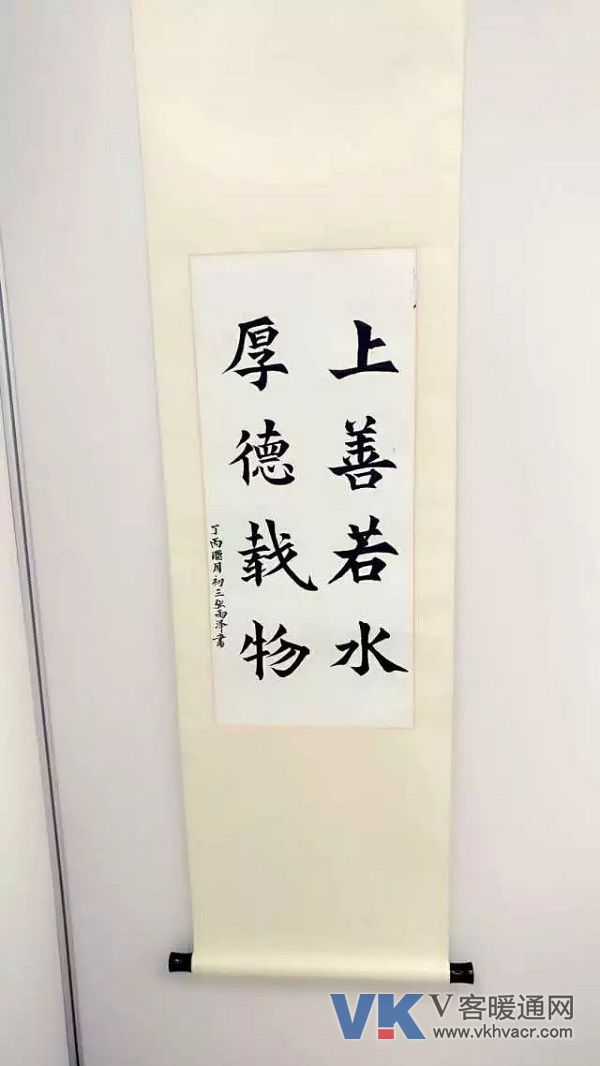 上善若水
厚德载物
丁丙腊月初三张雨泽书
VK V客暖通网
www.vkhvacr.com